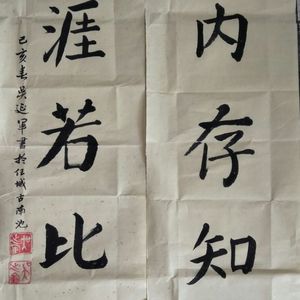 内存知
涯若比
己亥春吴延军书於任城古南池